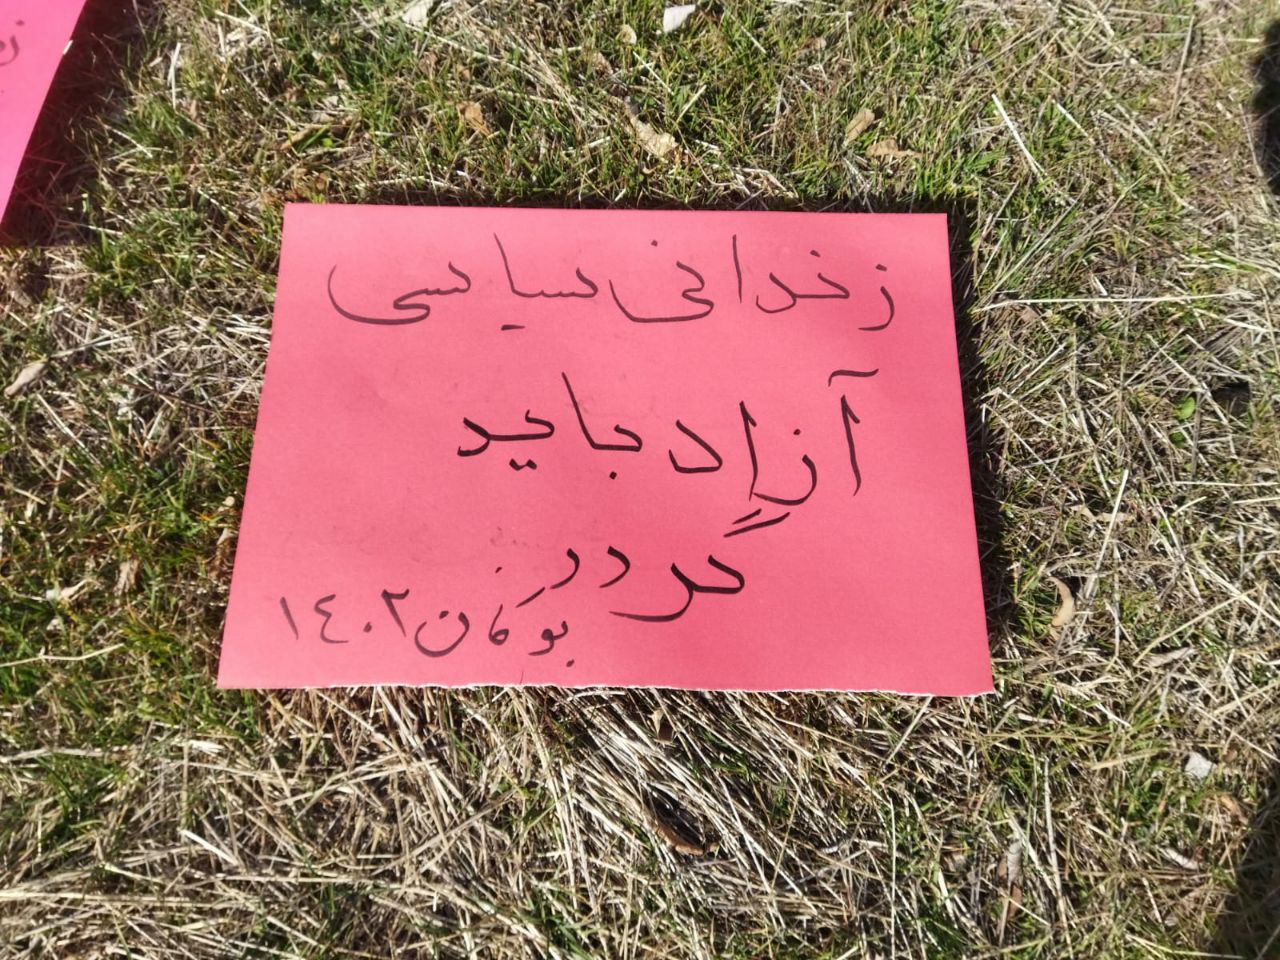 زندانی سیاسی
آزاد باید
گردد
بوکان ۱٤۰۲